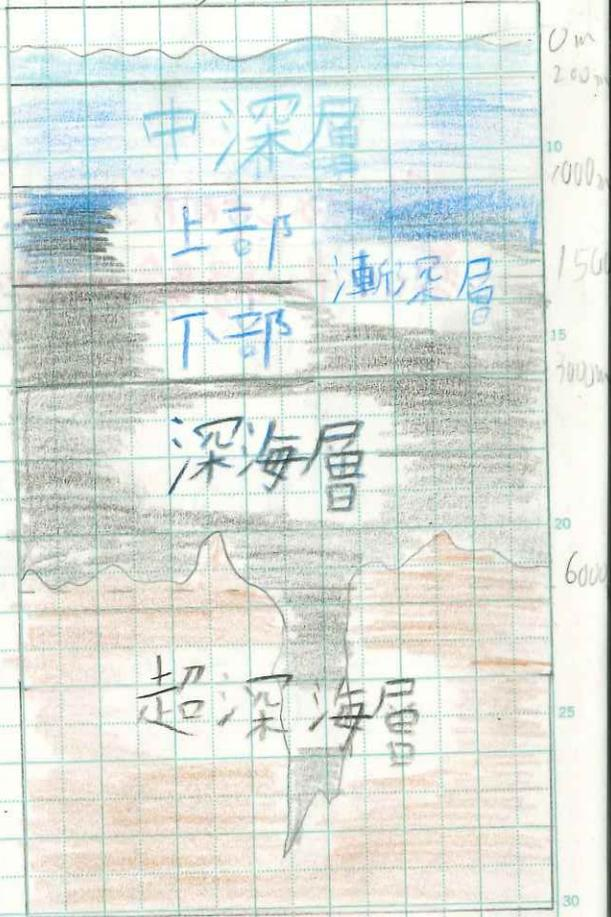 0m
200m
中深層
10
1000m
上部
漸深層
150
下部
15
3000m
深海層
20
6000
超深海層
25
30